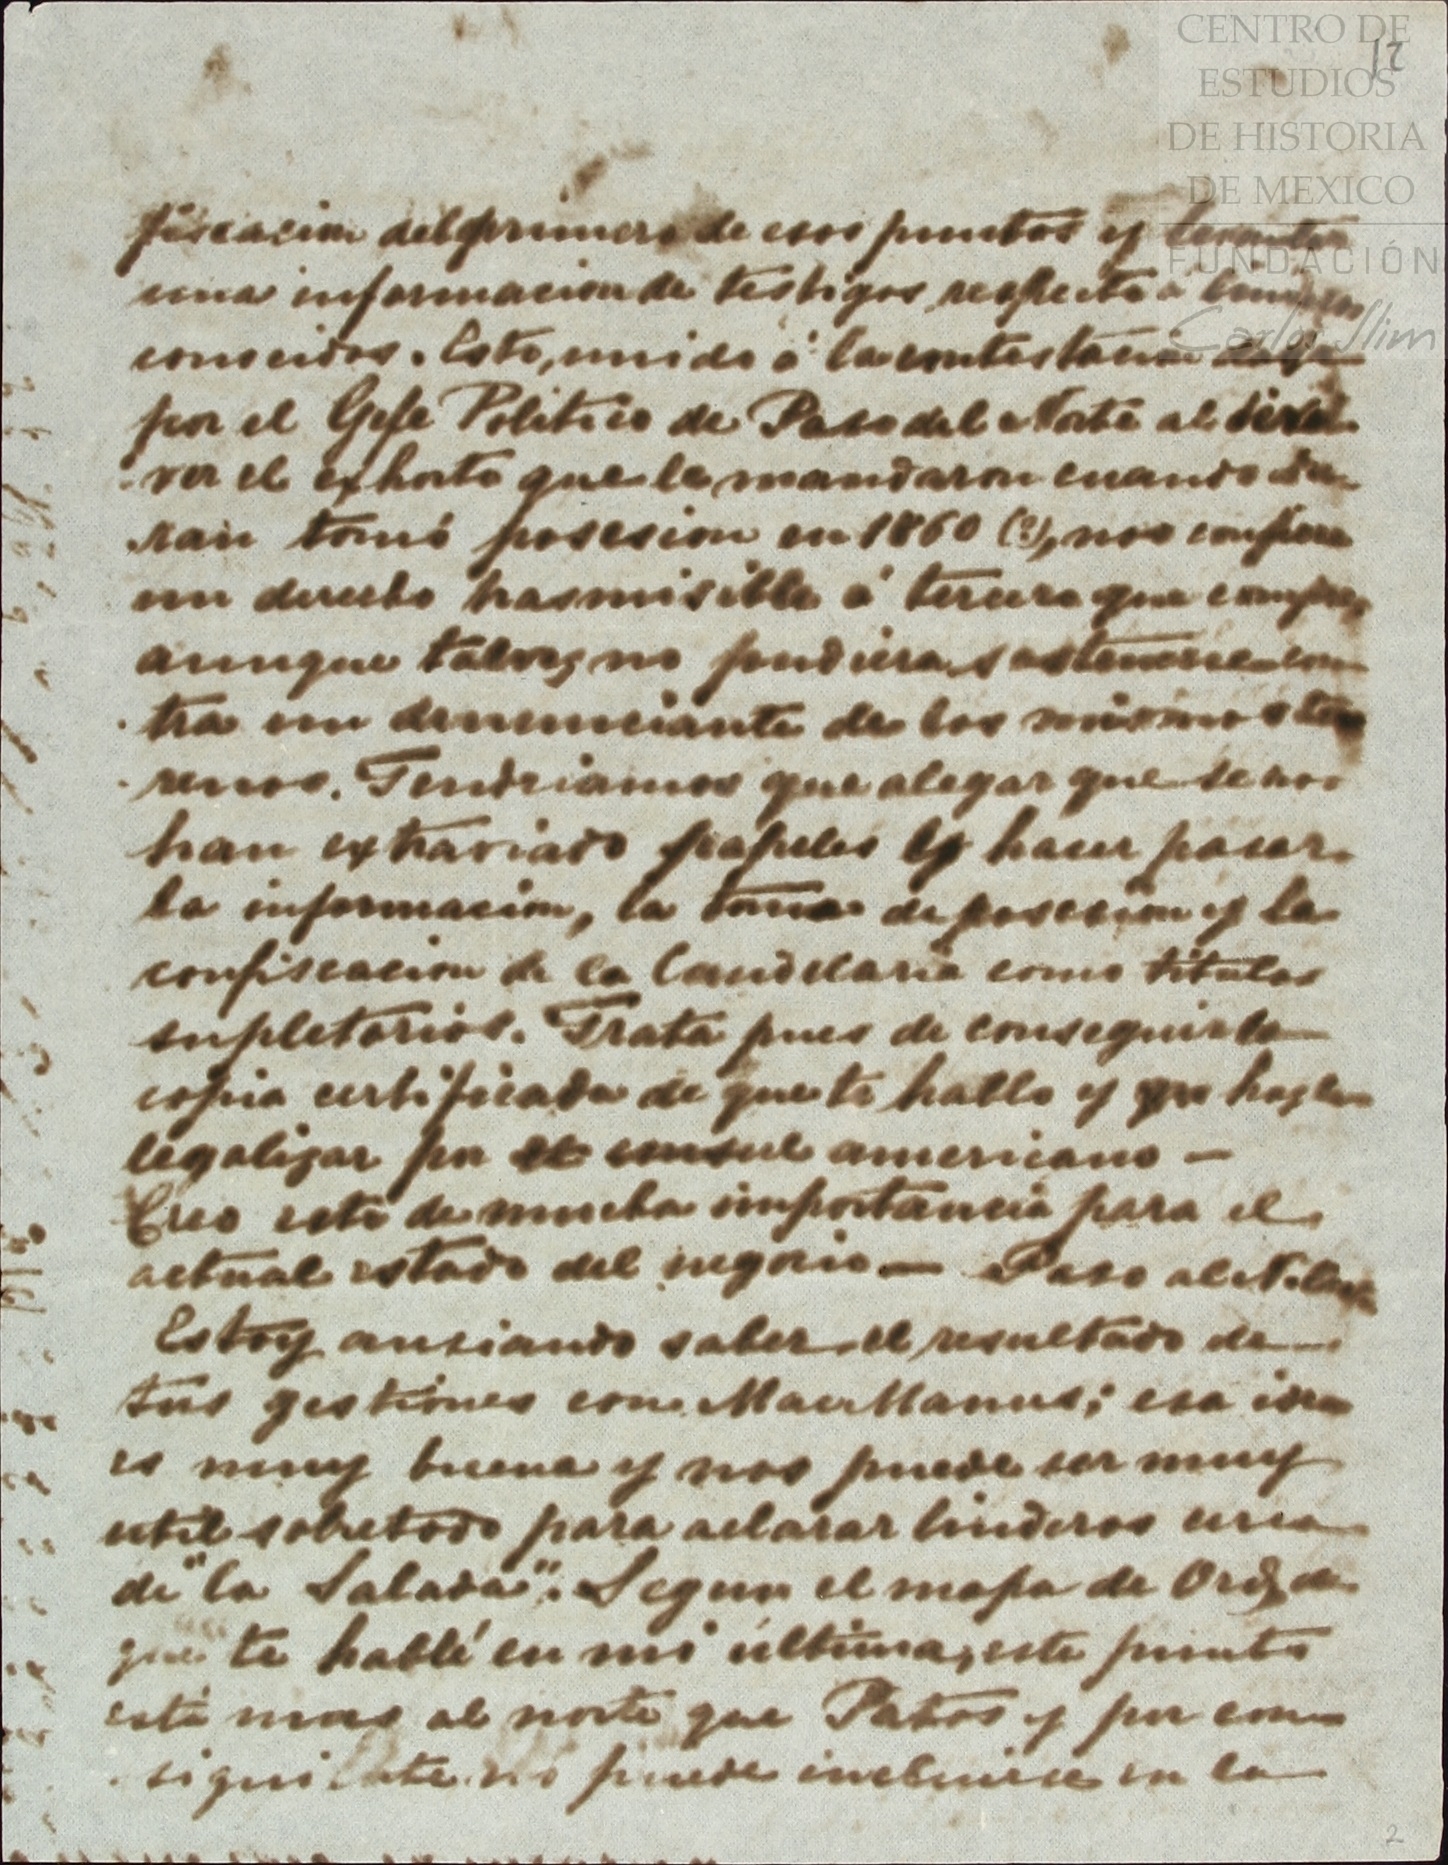 CENTRO DE
ESTUDIOS
DE HISTORIA
DE MEXICO
FUNDACIÓN
Carlos Slim
12
fiscacion del primero de esos puntos y levantar
una informacion de testigos respecto á linderos
conocidos. Esto, unido á la contestacion
por el Gefe Politico de Paso del Norte al devol
ver el exhorto que le mandaron cuando Du
ran tomó posesion en 1860 (?), nos confiere
un derecho trasmisible á tercero que compre,
aunque talvez no pudiera sostenerse con
tra un denunciante de los mismos ter
renos. Tendriamos que alegar que se nos
han extraviado papeles y hacer pasar
la informacion, la toma de posesion y la
confiscacion de la Candelaria como titulos
supletorios. Trata pues de conseguir la
copia certificada de que te hablo y hazla
legalizar por el consul americano —
Creo esto de mucha importancia para el
actual estado del negocio — Paso al N.
Estoy ansiando saber el resultado de
tus gestiones con MacManus; esa idea
es muy buena y nos puede ser muy
util sobretodo para aclarar linderos cerca
de "la Salada". Segun el mapa de Ord, de
que te hablé en mi última, este punto
está mas al norte que Patos y por con
siguiente no puede incluirse en la
2